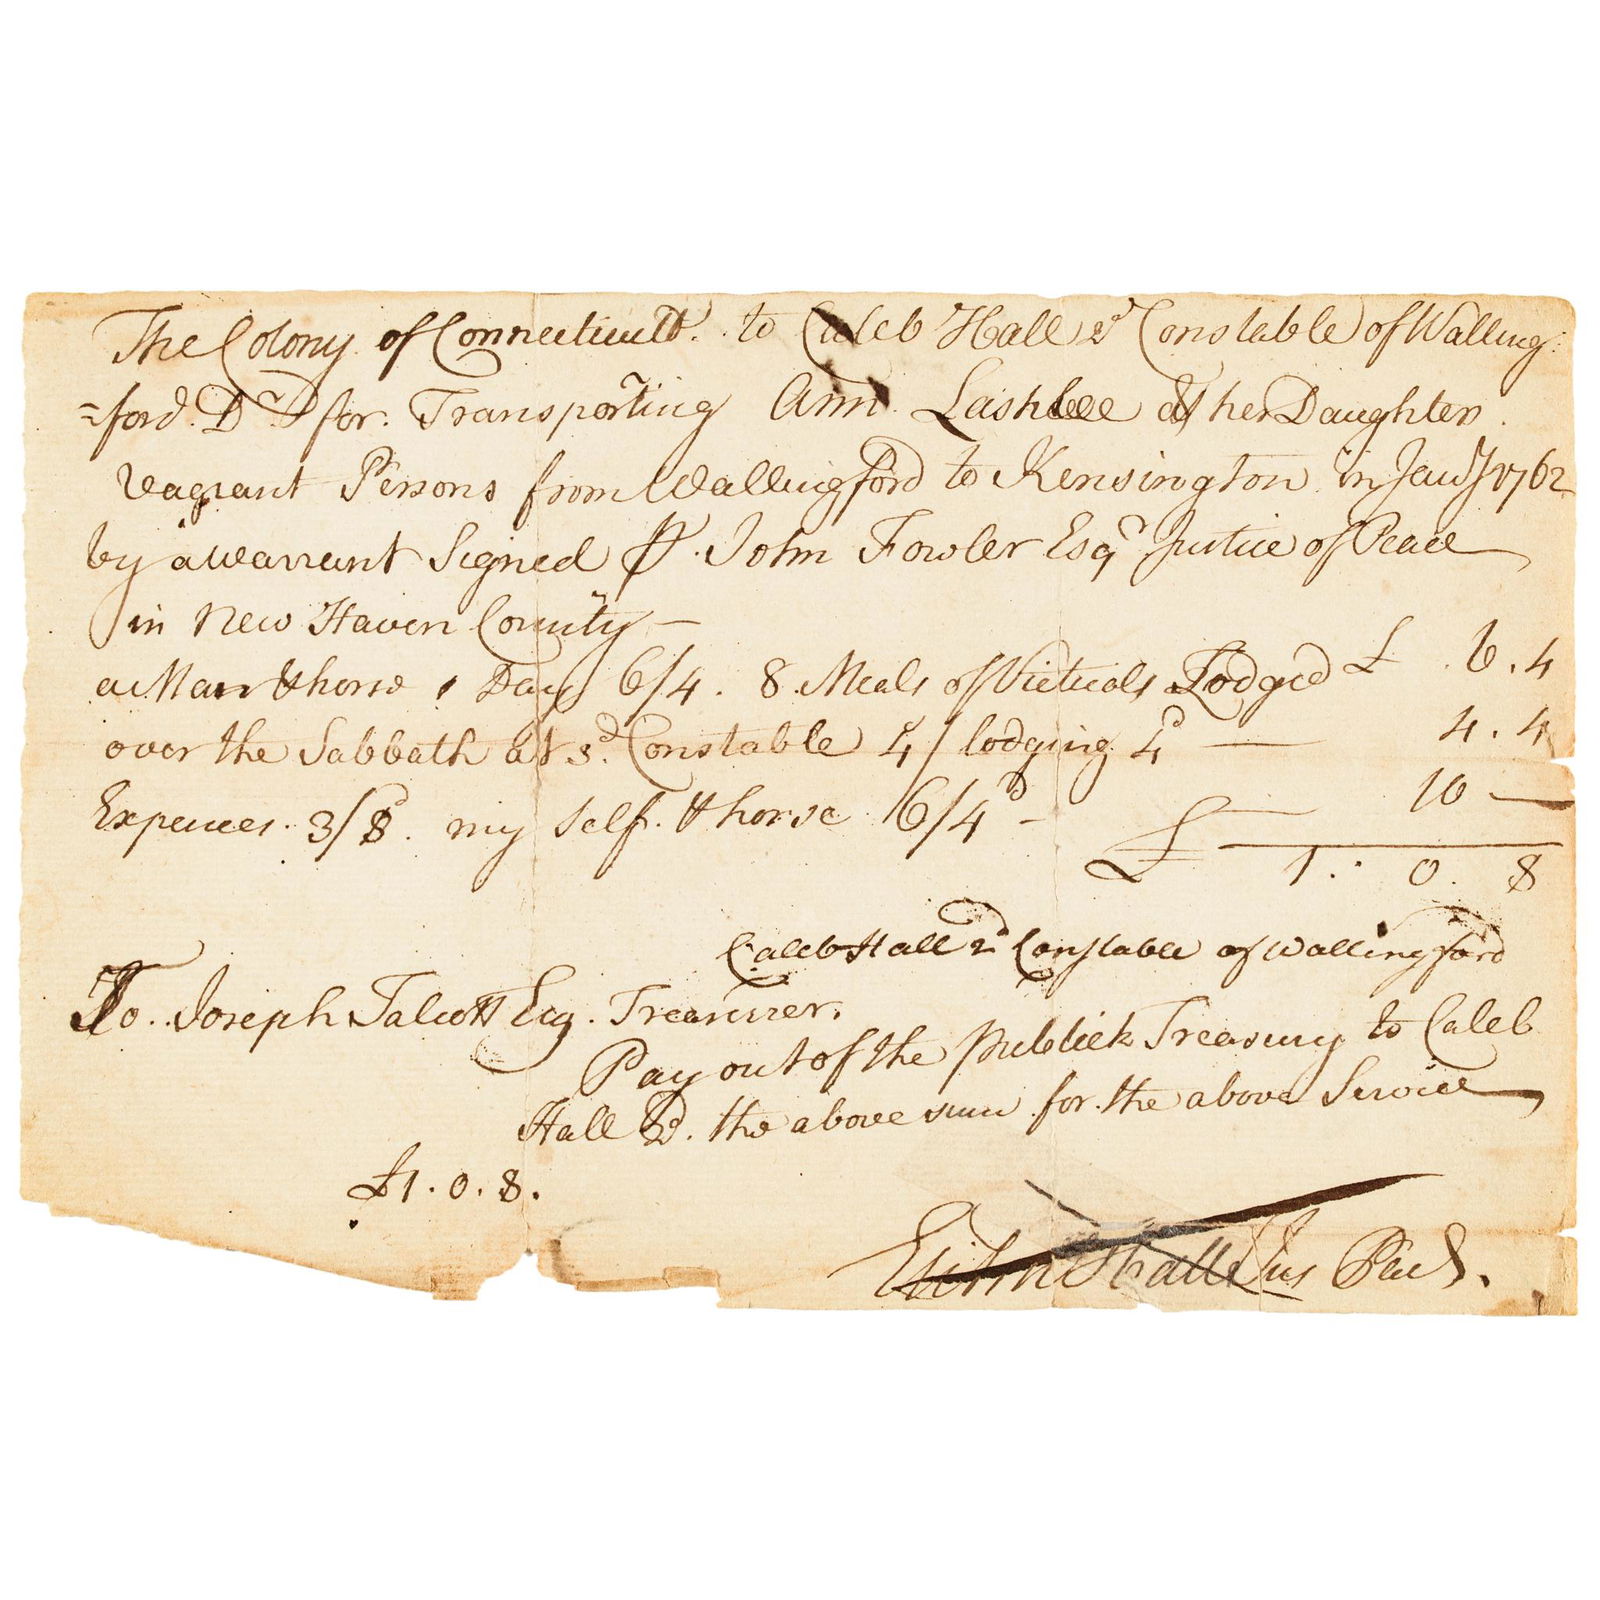 The Colony of Connecticutt. to Caleb Hall 2d Constable of Walling
=ford. Dr for. Transporting Ann Lashlee & her Daughter.
vagrant Persons from Wallingford to Kensington in Jany 1762
by a warrant Signed John Fowler Esqr Justice of Peace
in New Haven County —
a Man & horse 1 Day 6/4. 8 Meals of Victuals Lodged £ . 6 . 4
over the Sabbath at sd. Constable 4/ lodging 4d — 4 . 4
Expences. 3/8d. my self. & horse 6/4d — 10 —
£ 1 : 0 . 8
Caleb Hall 2d Constable of Wallingford
To. Joseph Talcott Esq. Treasurer.
Pay out of the publick Treasury to Caleb
Hall 2d. the above sum for. the above Service
£1 . 0 . 8 .
Elihu Hall Jus Peac